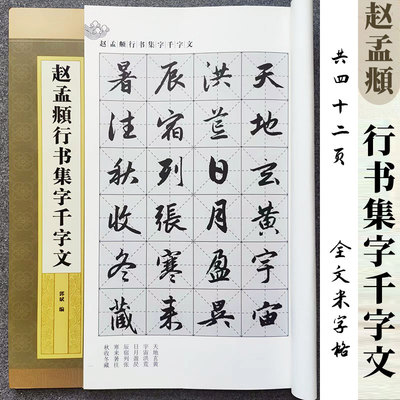 赵孟頫行书集字千字文
郭斌 编
赵孟頫行书集字千字文
天地玄黄宇宙
洪荒日月盈昃
辰宿列張寒来
暑往秋收冬藏
天地玄黄
宇宙洪荒
日月盈昃
辰宿列张
寒来暑往
秋收冬藏
赵孟頫
行书集字千字文
共四十二页
全文米字格